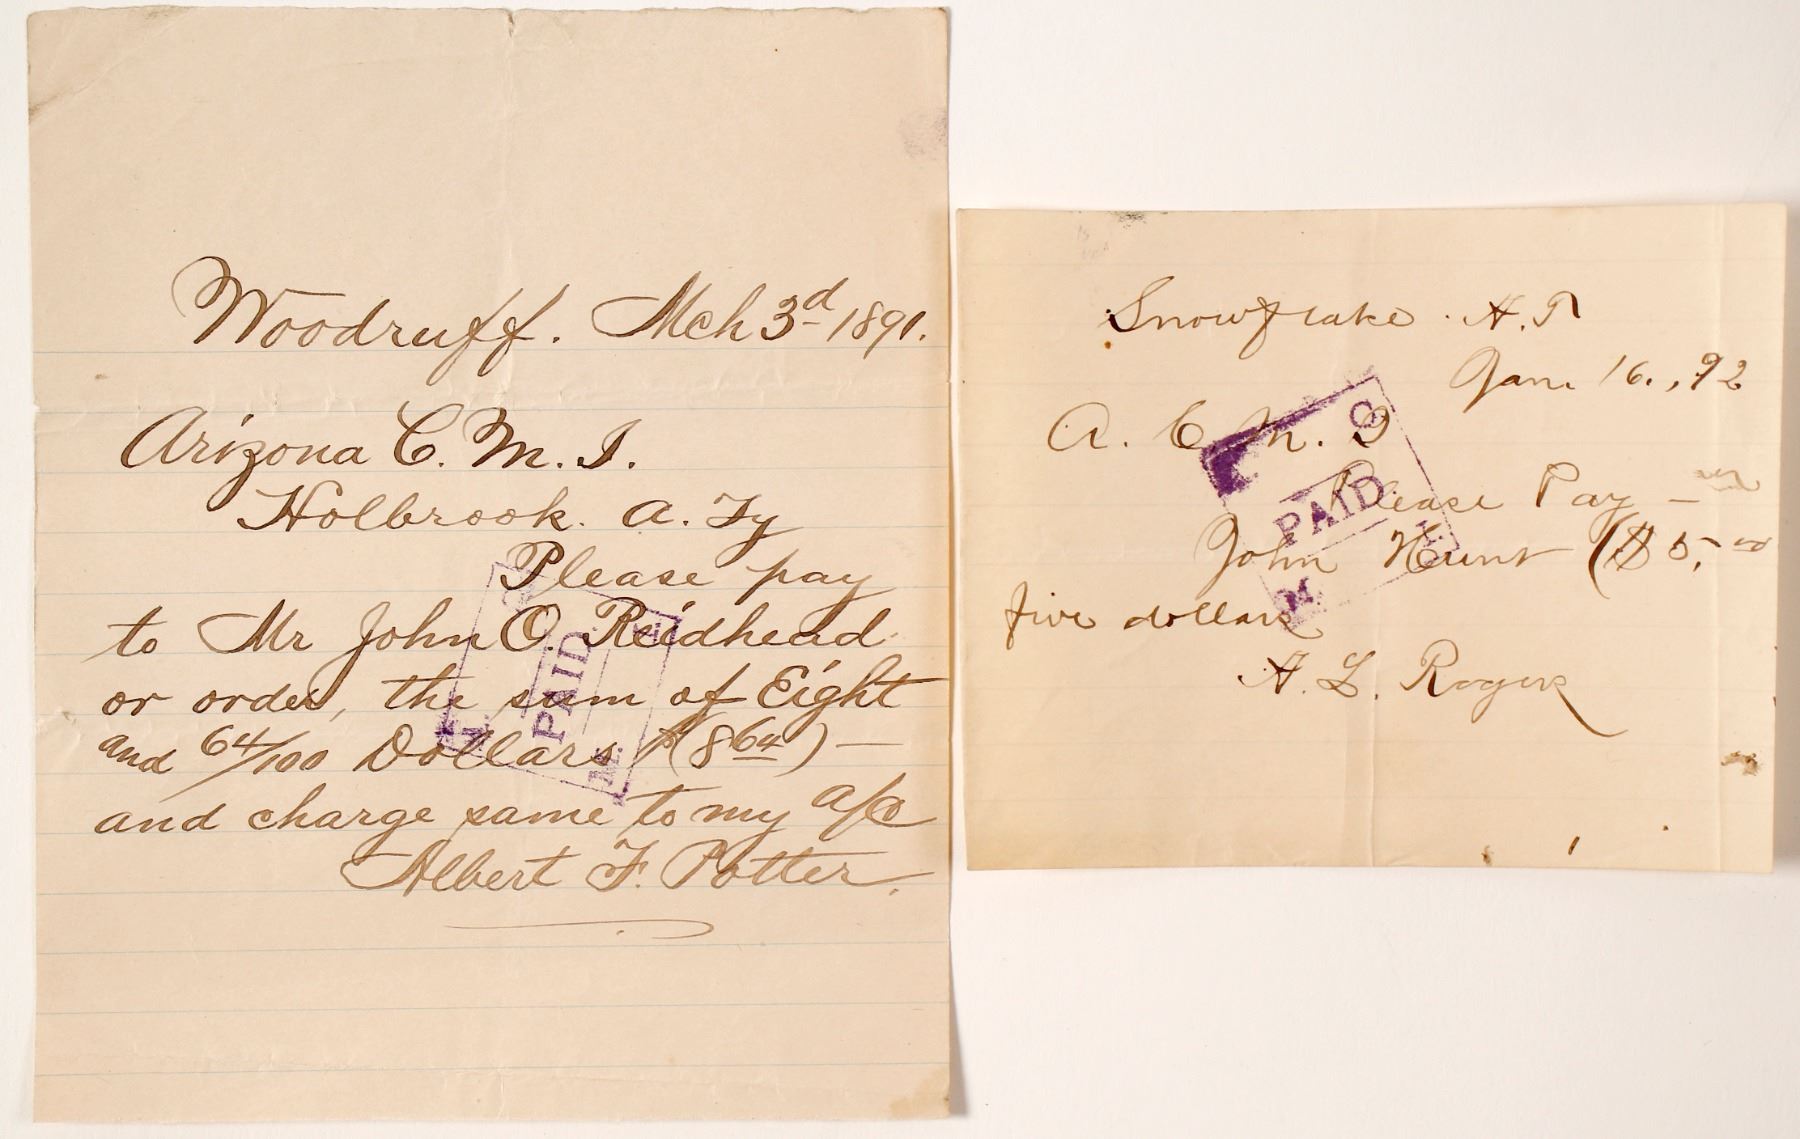 Woodruff. Mch 3d 1891.
Arizona C. M. I.
Holbrook. A. Ty
Please pay
to Mr John O. Reidhead
or order, the sum of Eight
and 64/100 Dollars $(8 64) —
and charge same to my a/c
Albert F. Potter.
PAID
M.
Snowflake. A. T
Jan. 16., 92
A. C. M. I
Please Pay —
John Hunt ($5.00
five dollars
A. L. Rogers
C.
PAID
M.
I.